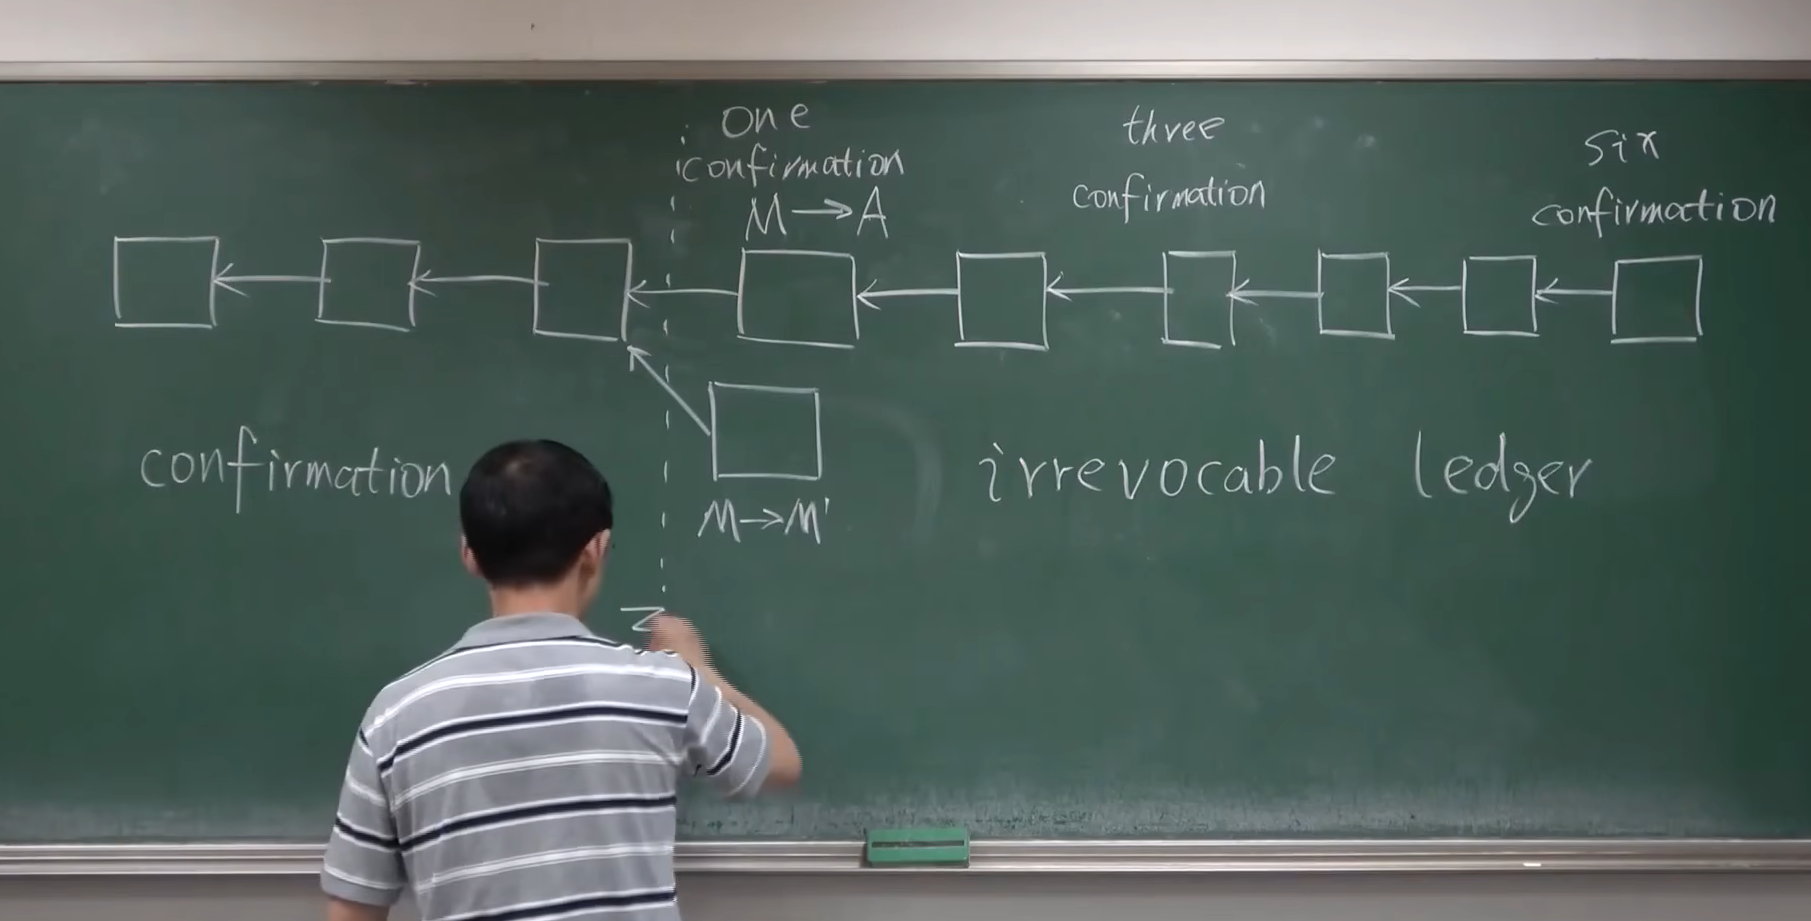 one
confirmation
M→A
three
confirmation
six
confirmation
confirmation
M→M'
irrevocable ledger